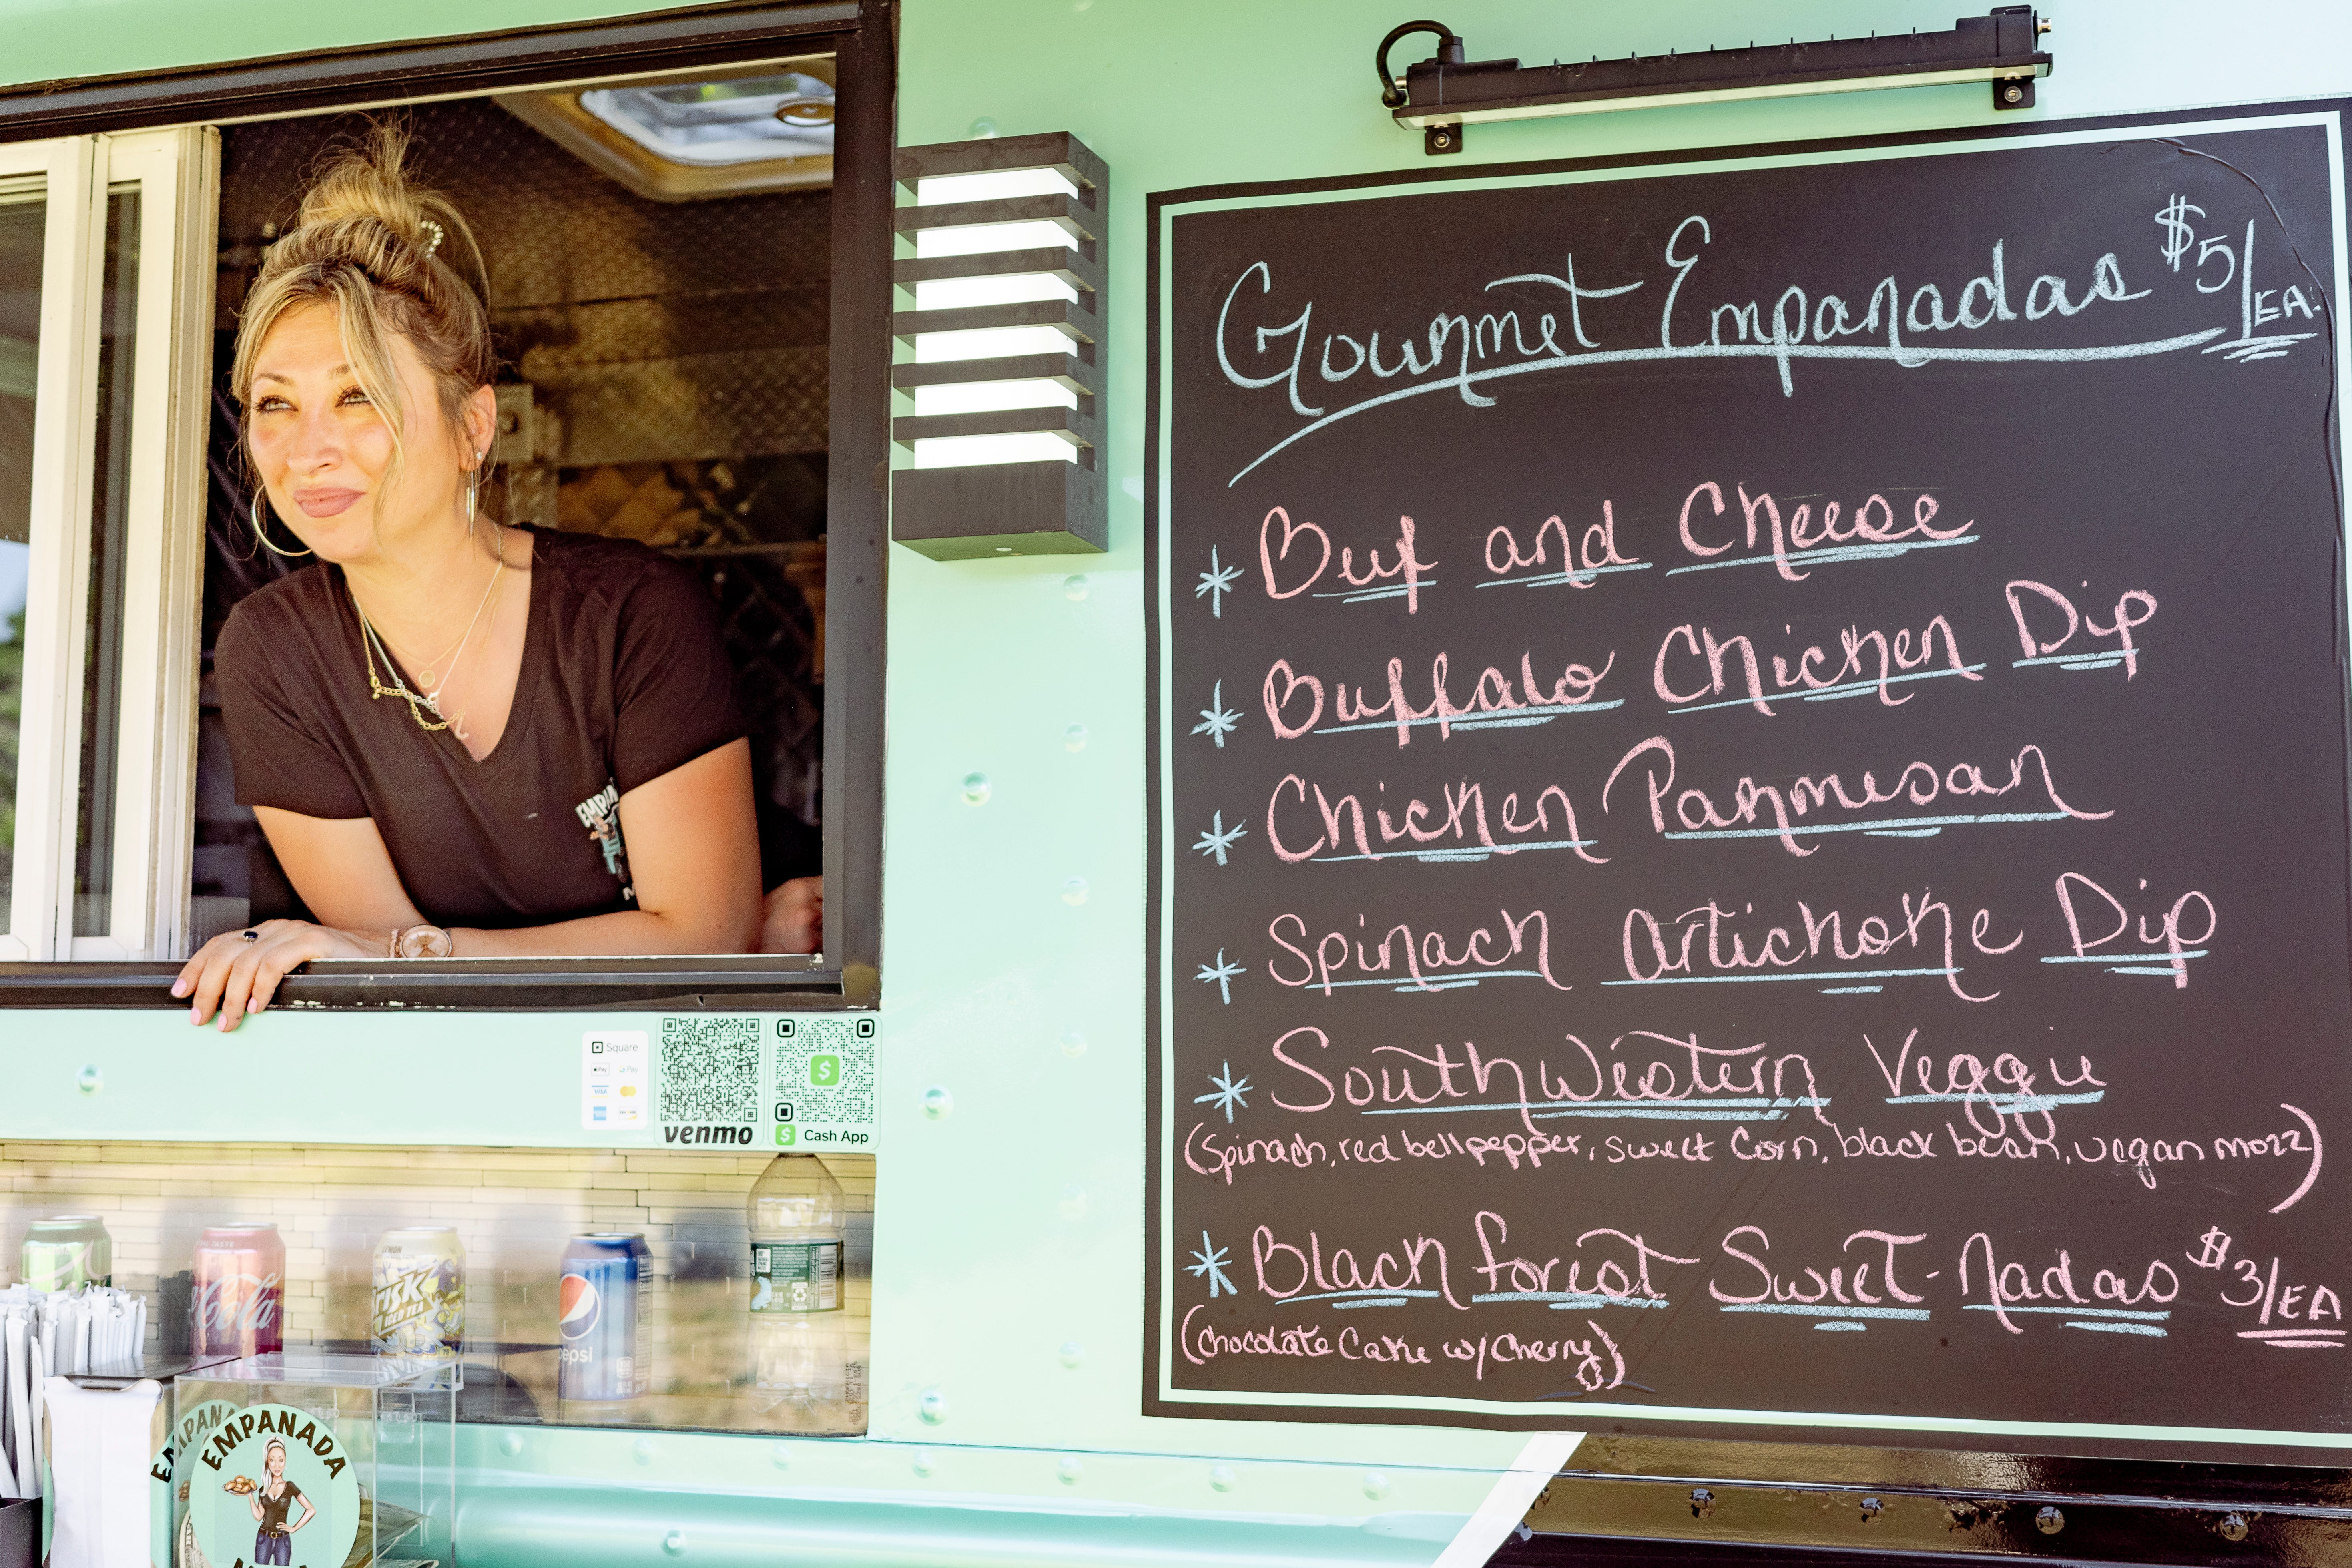 Gourmet Empanadas $5/EA.
* Beef and Cheese
* Buffalo Chicken Dip
* Chicken Parmesan
* Spinach Artichoke Dip
* Southwestern Veggie
(Spinach, red bell pepper, sweet corn, black bean, vegan mozz)
* Black forest Sweet-Nadas $3/EA
(Chocolate Cake w/ Cherry)
EMPANA
Square
Pay
Pay
VISA
venmo
$ Cash App
Cola
LEMON
RISK
ICED TEA
pepsi
EMPANA
EMPANADA